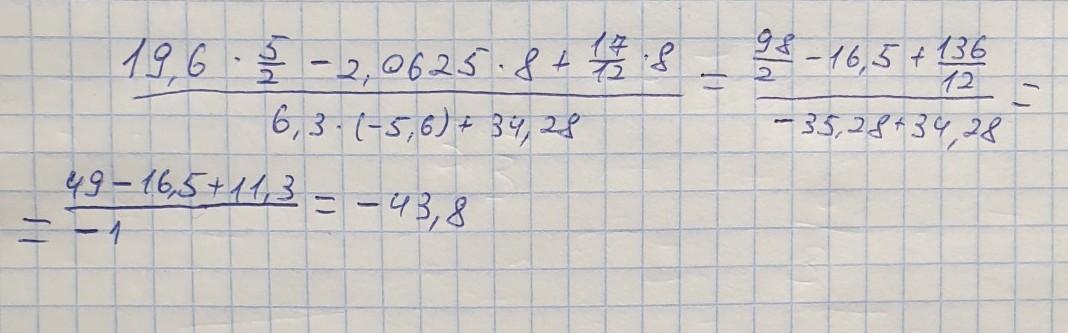 (19,6 · 5/2 - 2,0625 · 8 + 17/12 · 8) / (6,3 · (-5,6) + 34,28) = (98/2 - 16,5 + 136/12) / (-35,28 + 34,28) =
= (49 - 16,5 + 11,3) / (-1) = -43,8